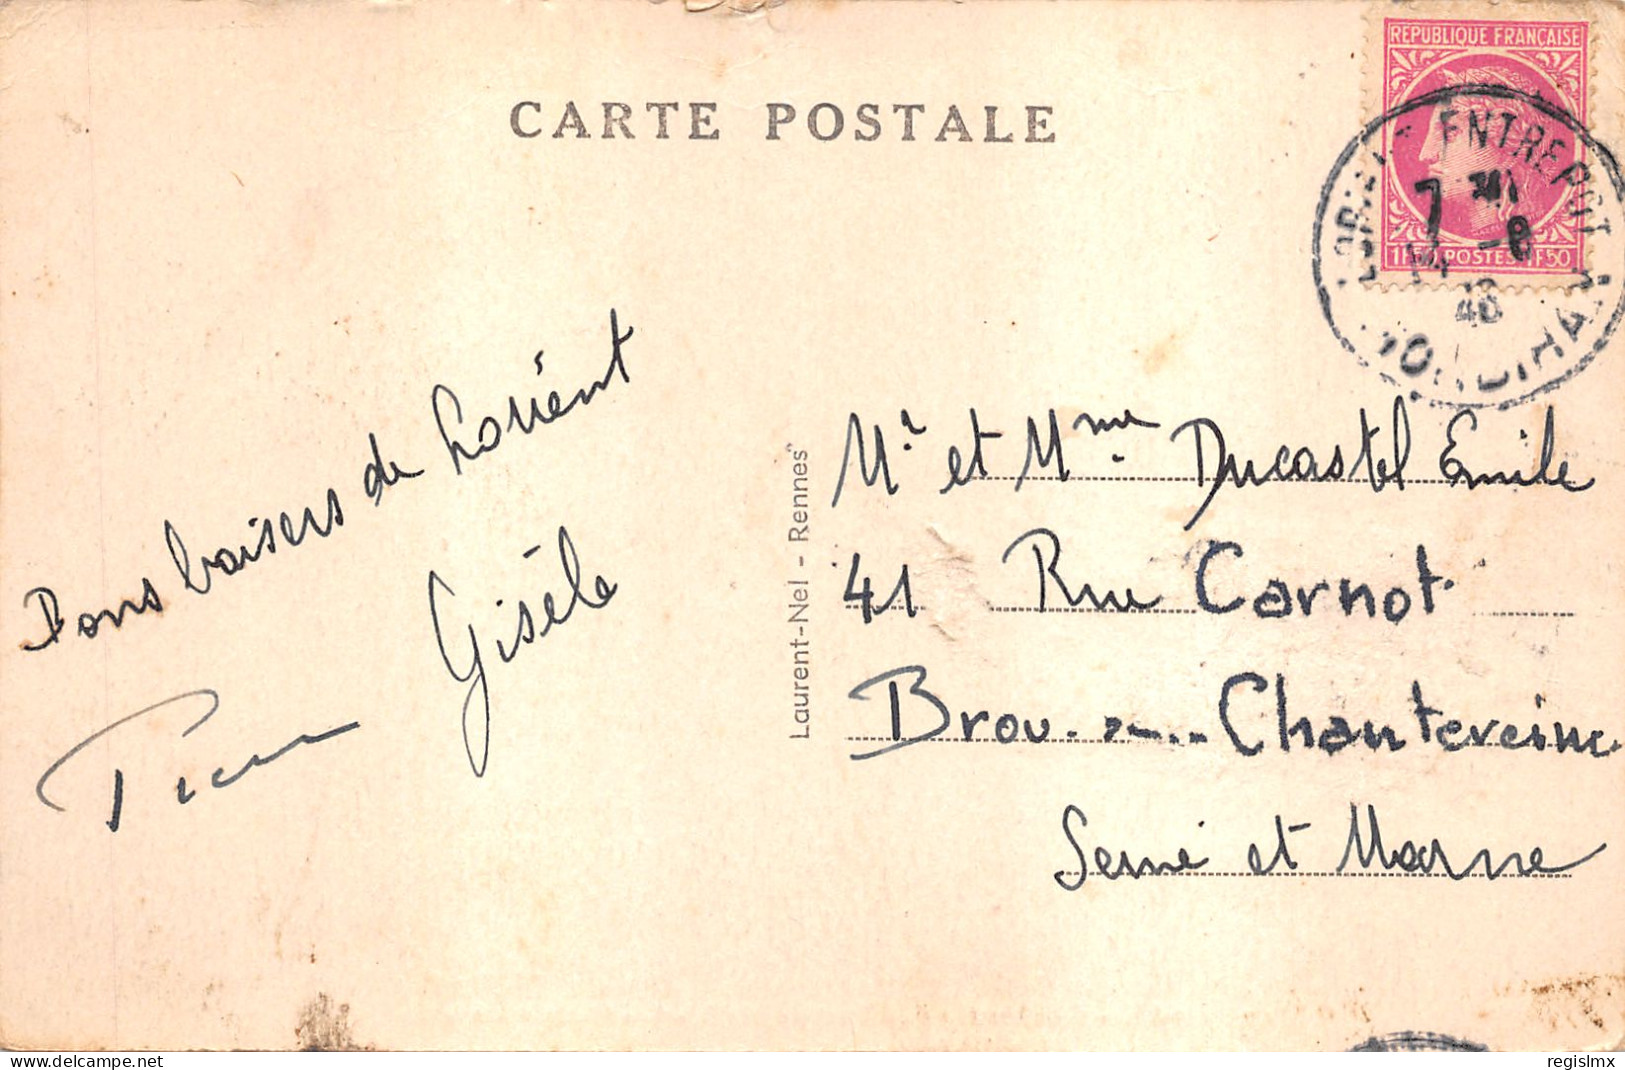 CARTE POSTALE
REPUBLIQUE FRANÇAISE
1F50 POSTES 1F50
LORIENT ENTREPOT
7
14 -8
46
MORBIHAN
Bons baisers de Lorient
Gisèle
Pierre
Laurent-Nel - Rennes
Mr et Mme Ducastel Emile
41 Rue Carnot
Brou - Chantereine
Seine et Marne
www.delcampe.net
regislmx